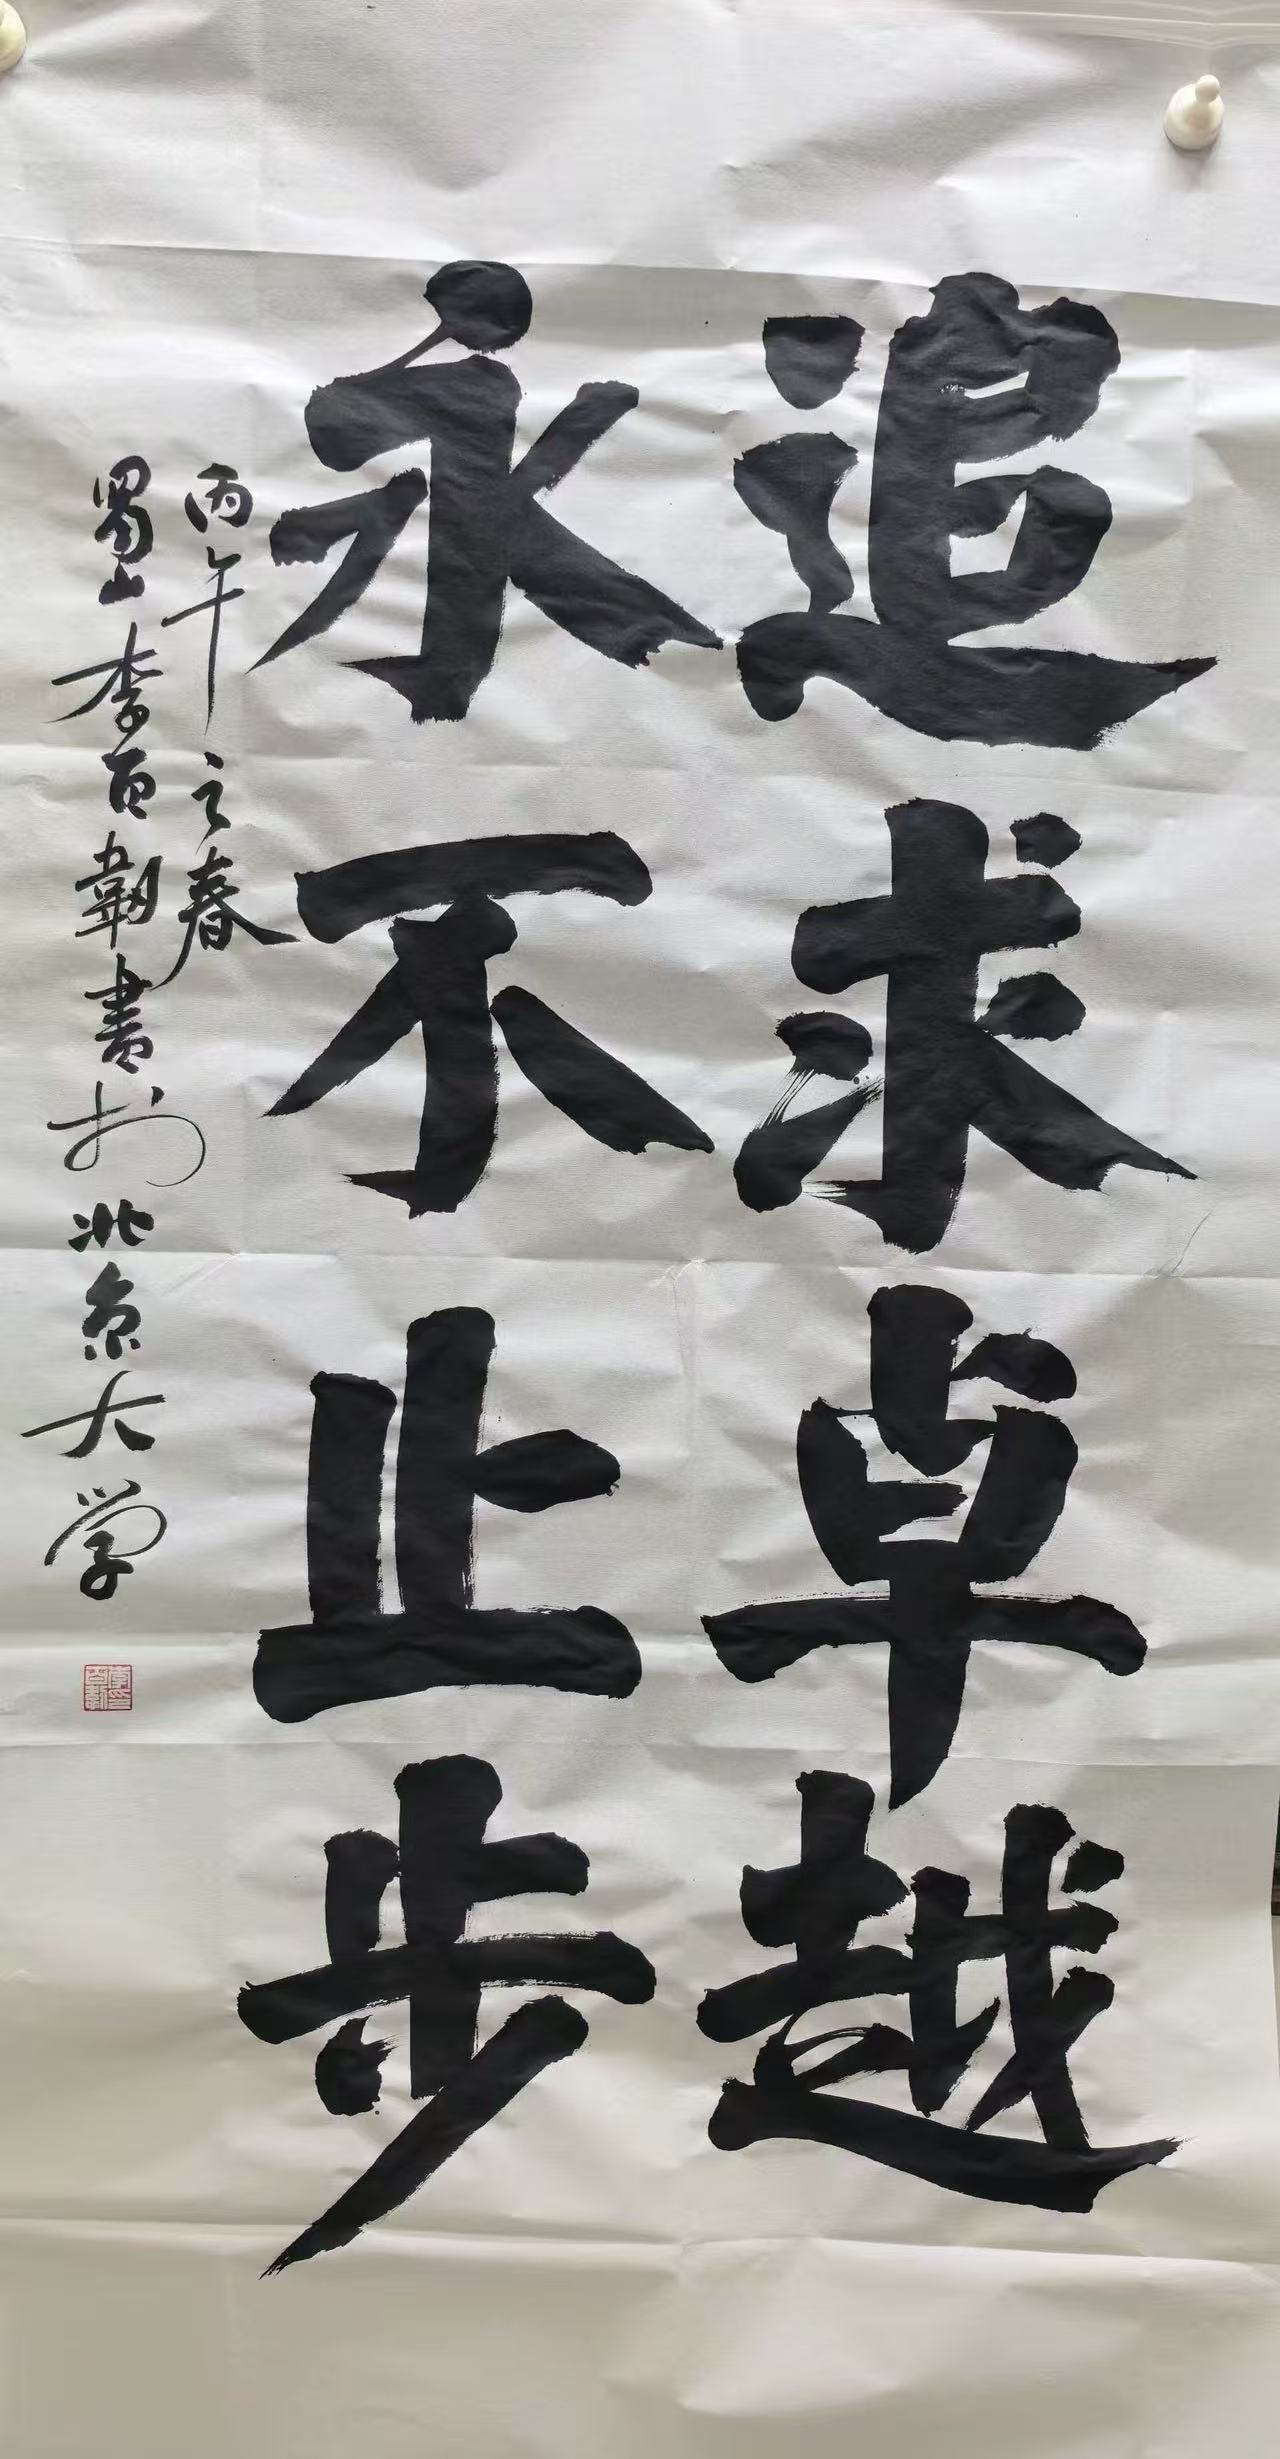 追求卓越
永不止步
丙午之春
蜀山李百韌書於北京大学